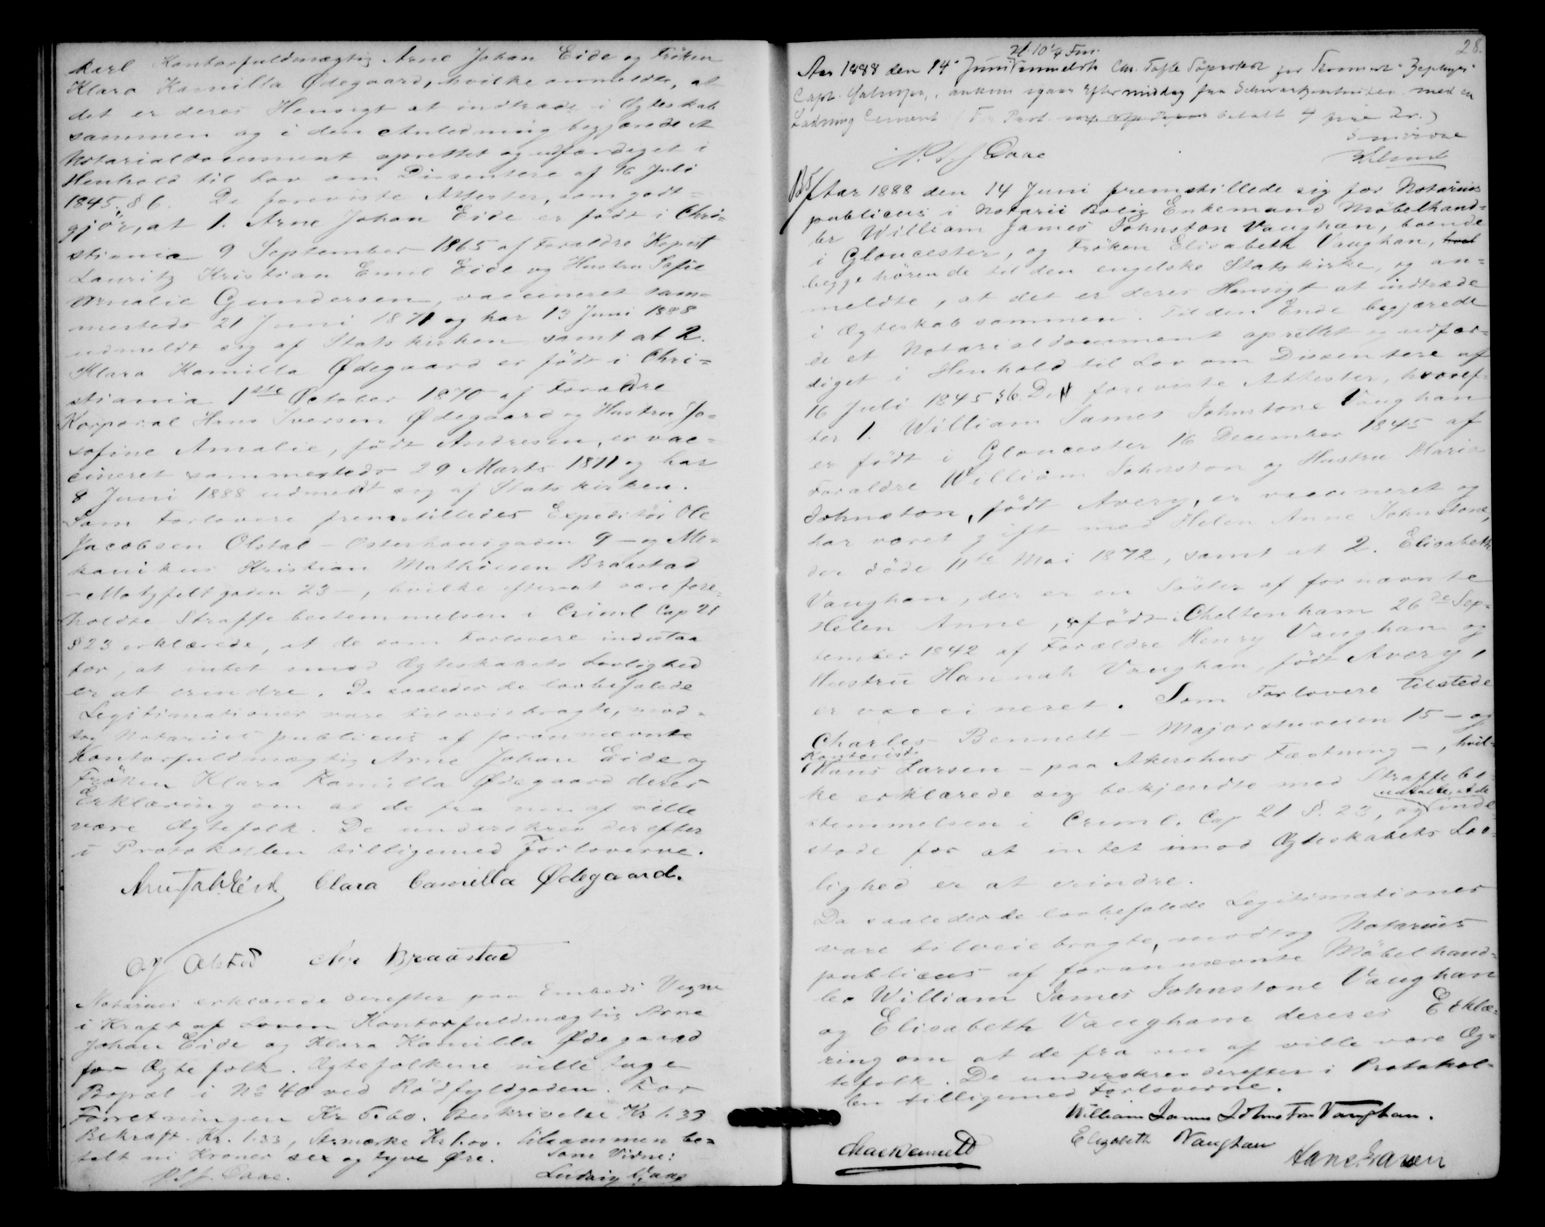 Karl Kontorfuldmægtig Arne Johan Eide og Frøken
Klara Kamilla Ødegaard, hvilke anmeldte, at
det er deres Hensigt at indtræde i Ægteskab
sammen og i den Anledning begjærede et
Notarialdocument oprettet og udfærdiget i
Henhold til Lov om Dissentere af 16 Juli
1845 § 6. De foreviste Attester, som godt=
gjör, at 1. Arne Johan Eide er født i Chri=
stiania 9 September 1865 af Forældre Kopist
Lauritz Kristian Emil Eide og Hustru Sofie
Amalie Gundersen, vaccineret sam=
mesteds 21 Juni 1871 og har 13 Juni 1888
udmeldt sig af Statskirken samt at 2.
Klara Kamilla Ødegaard er født i Chri=
stiania 1ste October 1870 af Forældre
Korporal Hans Iversen Ødegaard og Hustru Jo=
sofine Amalie, født Andresen, er vac=
cineret sammesteds 29 Marts 1871 og har
8 Juni 1888 udmeldt sig af Statskirken.
Som Forlovere fremstilledes Expeditør Ole
Jacobsen Olstad - Osterhausgaden 9 - og Me=
kanikus Kristian Mathiesen Braastad
- Motzfeltgaden 23 -, hvilke efterat være fore=
holdte Straffebestemmelsen i Criml Cap 21
§ 23 erklærede, at de som Forlovere indestaa
for, at intet imod Ægteskabets Lovlighed
er at erindre. Da saaledes de lovbefalede
Legitimationer vare tilveiebragte, mod=
tog Notarius publicus af forannævnte
Kontorfuldmægtig Arne Johan Eide og
Frøken Klara Kamilla Ødegaard deres
Erklæring om at de fra nu af ville
være Ægtefolk. De underskrev derefter
i Protokollen tilligemed Forloverne.
Arne Joh. Eide Clara Camilla Ødegaard.
O. J. Olstad Chr Braastad
Notarius erklærede derefter paa Embeds Vegne
i Kraft af Loven Kontorfuldmægtig Arne
Johan Eide og Klara Kamilla Ødegaard
for Ægtefolk. Ægtefolkene ville tage
Bopæl i No 40 ved Rødfyldgaden. For
Forretningen Kr 6.60. Beskrivelse Kr 1.33
Bekræft. Kr. 1.33, Armærke Kr 1.00. Tilsammen be=
talt ni Kroner sex og tyve Øre. Som Vidne:
Daae. Ludvig
28.
Kl 10 1/4 Fm.
Aar 1888 den 14 Juni anmeldte
Capt. ankom igaar Eftermiddag fra med en
Ladning Cement betalt 4 fire Kr.)
Daae
185/ Aar 1888 den 14 Juni fremstillede sig for Notarius
publicus i Notarii Bolig Enkemand Møbelhand=
ler William James Johnston Vaughan, boende
i Gloucester, og Frøken Elisabeth Vaughan,
begge hørende til den engelske Statskirke, og an=
meldte, at det er deres Hensigt at indtræde
i Ægteskab sammen. Til den Ende begjærede
de et Notarialdocument oprettet og udfær=
diget i Henhold til Lov om Dissentere af
16 Juli 1845 § 6. De foreviste Attester, hvoref=
ter 1. William James Johnstone Vaughan
er født i Gloucester 16 December 1845 af
Forældre William Johnston og Hustru Maria
Johnston, født Avery, er vaccineret og
har været gift med Helen Anne Johnstone,
der døde 11te Mai 1872, samt at 2. Elisabeth
Vaughan, der er en Søster af fornævnte
Helen Anne, er født i Cheltenham 26de Sep=
tember 1842 af Forældre Henry Vaughan og
Hustru Hannah Vaughan, født Avery,
er vaccineret. Som Forlovere tilstede
Charles Bennett - Majorstuveien 15 - og
Kontorist
Hans Larsen - paa Akershus Fæstning -, hvil=
ke erklærede sig bekjendte med Straffebe=
stemmelsen i Criml. Cap 21 §. 23, og udtalte, at de inde
stode for at intet imod Ægteskabets Lov
lighed er at erindre.
Da saaledes de lovbefalede Legitimationer
vare tilveiebragte, modtog Notarius
publicus af forannævnte Møbelhand=
ler William James Johnstone Vaughan
og Elisabeth Vaughan deres Erklæ=
ring om at de fra nu af ville være Æg=
tefolk. De underskrev derefter i Protokol=
len tilligemed Forloverne.
William James Johnston Vaughan.
Elizabeth Vaughan
Chas Bennett
Hans Larsen